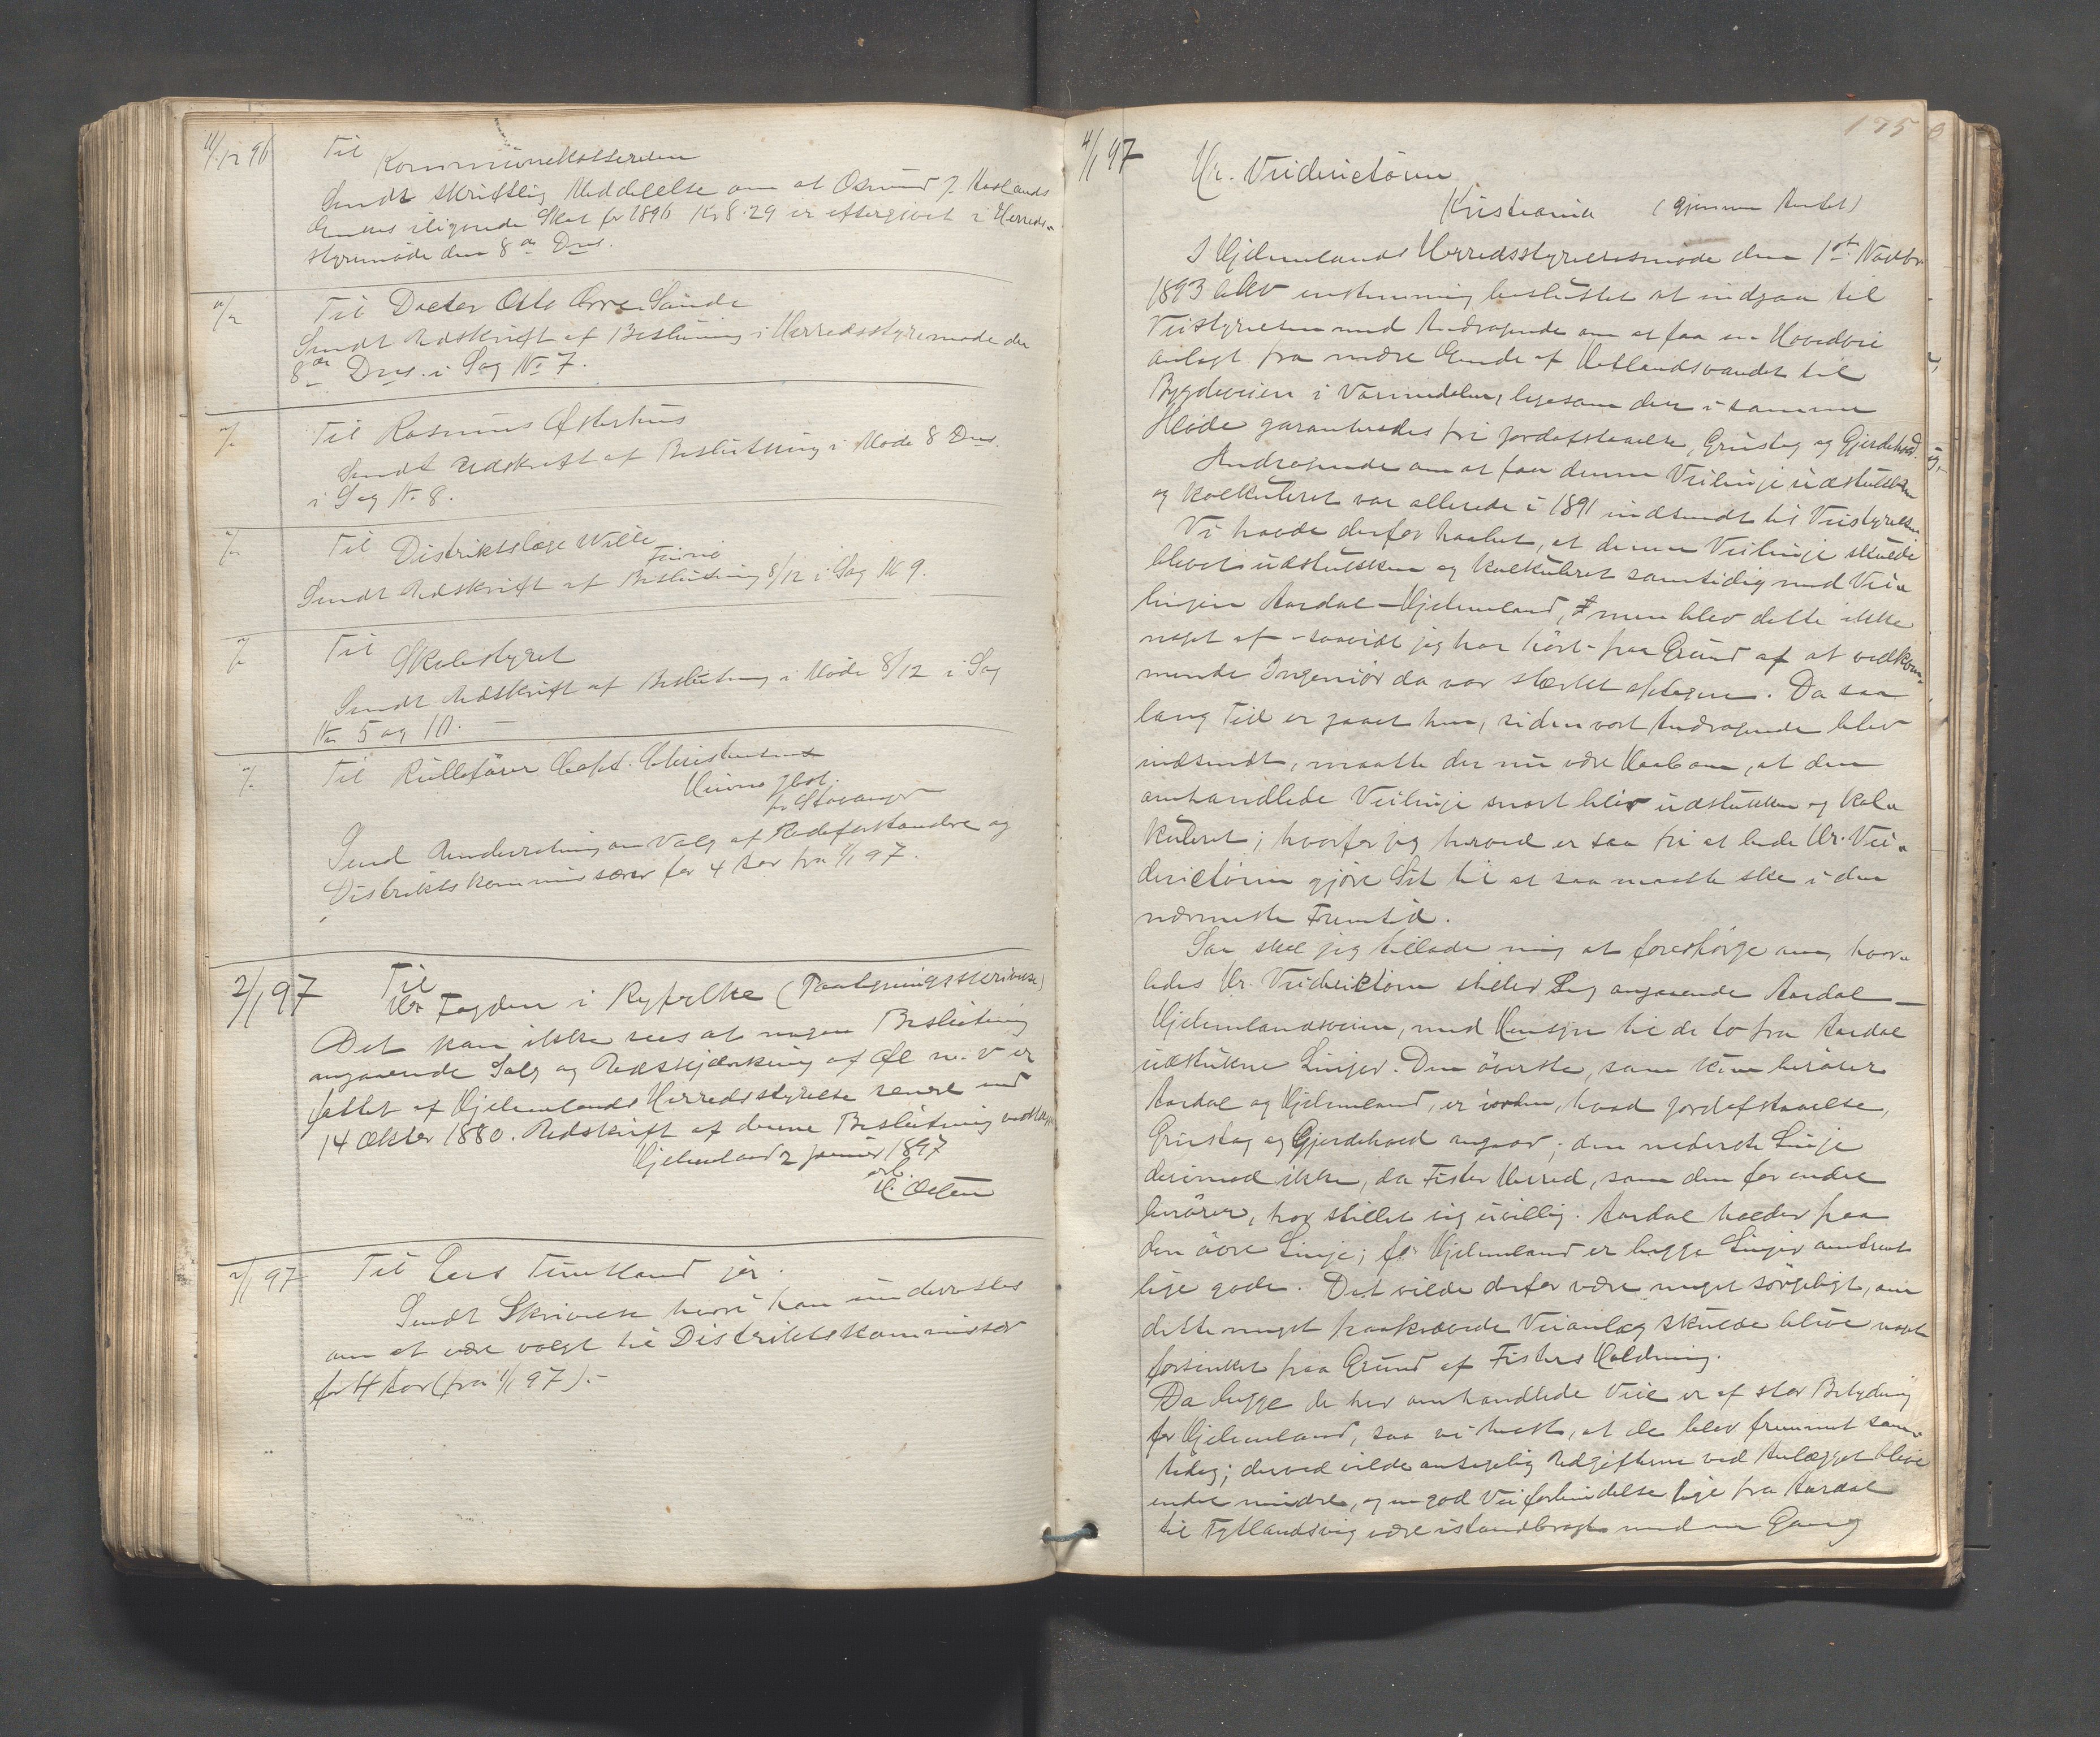 11/12 96
Til
Kommunekassereren
Sendt skriftlig Meddelelse om at Osmund J. Haslands
Enkes ilignede Skat for 1896 Kr 8.29 er eftergivet i Herreds-
styremøde den 8de Dns.
Til Docter Otto Orre Sande
Sendt Udskrift af Beslutning i Herredsstyremøde den
8de Dns. i Sag No 7.
Til Rasmus Østerhus
Sendt Udskrift af Beslutning i Møde 8 Dns.
i Sag No 8.
Til Distriktslæge Wille
Sendt Udskrift af Beslutning 8/12 i Sag No 9.
Til Skolestyret
Sendt Udskrift af Beslutning i Møde 8/12 i Sag
No 5 og 10. —
Til Rullefører Capt. Christensen
pr Stavanger
Send Underretning om Valg af Rodeforstandere og
Distriktskommissærer for 4 Aar fra 1/1 97.
2/1 97
Til
Hr. Fogden i Ryfylke (Paategningsskrivelse)
Det kan ikke sees at nogen Beslutning
angaaende Salg og Udskjænkning af Øl m. v. er
fattet af Hjelmelands Herredsstyrelse senere end
14 Oktbr 1880. Udskrift af denne Beslutning vedlægges
Hjelmeland 2 Januar 1897
2/1 97
Til Lars Tuntland jr.
Sendt Skrivelse hvori han underrettes
om at være valgt til Distriktskommissær
for 4 Aar (fra 1/1 97). —
175
4/1 97
Hr. Veidirectøren
Kristiania (gjennem Amtet)
I Hjelmelands Herredsstyrelsesmøde den 1st Novbr
1893 blev enstemmig besluttet at indgaa til
Veistyrelsen med Andragende om at faa en Hovedvei
anlagt fra nedre Ende af Hetlandsvandet til
Bygdeveien i Vormedalen, ligesom der i samme
Møde garanteredes fri Jordafstaaelse, Grustag og Gjerdehold.
Andragende om at faa denne Veilinje udstukken
og kalkuleret var allerede i 1891 indsendt til Veistyrelsen
Vi havde derfor haabet, at denne Veilinje skulde
blevet udstukken og kalkuleret samtidig med Vei-
linjen Aardal – Hjelmeland, men blev dette ikke
noget af – saavidt jeg har hørt – paa Grund af at vedkom-
mende Ingeniør da var stærkt optagen. Da saa
lang Tid er gaaet hen, siden vort Andragende blev
indsendt, maatte der nu være Haab om, at den
omhandlede Veilinje snart blev udstukken og kal-
kuleret; hvorfor jeg herved er saa fri at bede Hr. Vei-
directøren gjøre Sit til at saa maatte ske i den
nærmeste Fremtid.
Saa skal jeg tillade mig at forespørge om, hvor-
ledes Hr. Veidirectøren stiller Sig angaaende Aardal –
Hjelmelandsveien, med Hensyn til de to fra Aardal
udstukne Linjer. Den øverste, som kun berører
Aardal og Hjelmeland, er iorden, hvad Jordafstaaelse,
Grustag og Gjerdehold angaar; den nederste Linje
derimod ikke, da Fister Herred, som den for endel
berører, har stillet sig uvillig. Aardal holder paa
den øvre Linje; for Hjelmeland er begge Linjer omtrent
lige gode. Det vilde derfor være meget sørgeligt, om
dette meget paakrævede Veianlæg skulde blive
forsinket paa Grund af Fisters Holdning.
Da begge de her omhandlede Veie er af stor Betydning
for Hjelmeland, saa vi helst, at de blev fremmet sam-
tidig; derved vilde antagelig Udgifterne ved Anlægget blive
endel mindre, og en god Veiforbindelse lige fra Aardal
til Tytlandsvig være istandbragt med en Gang